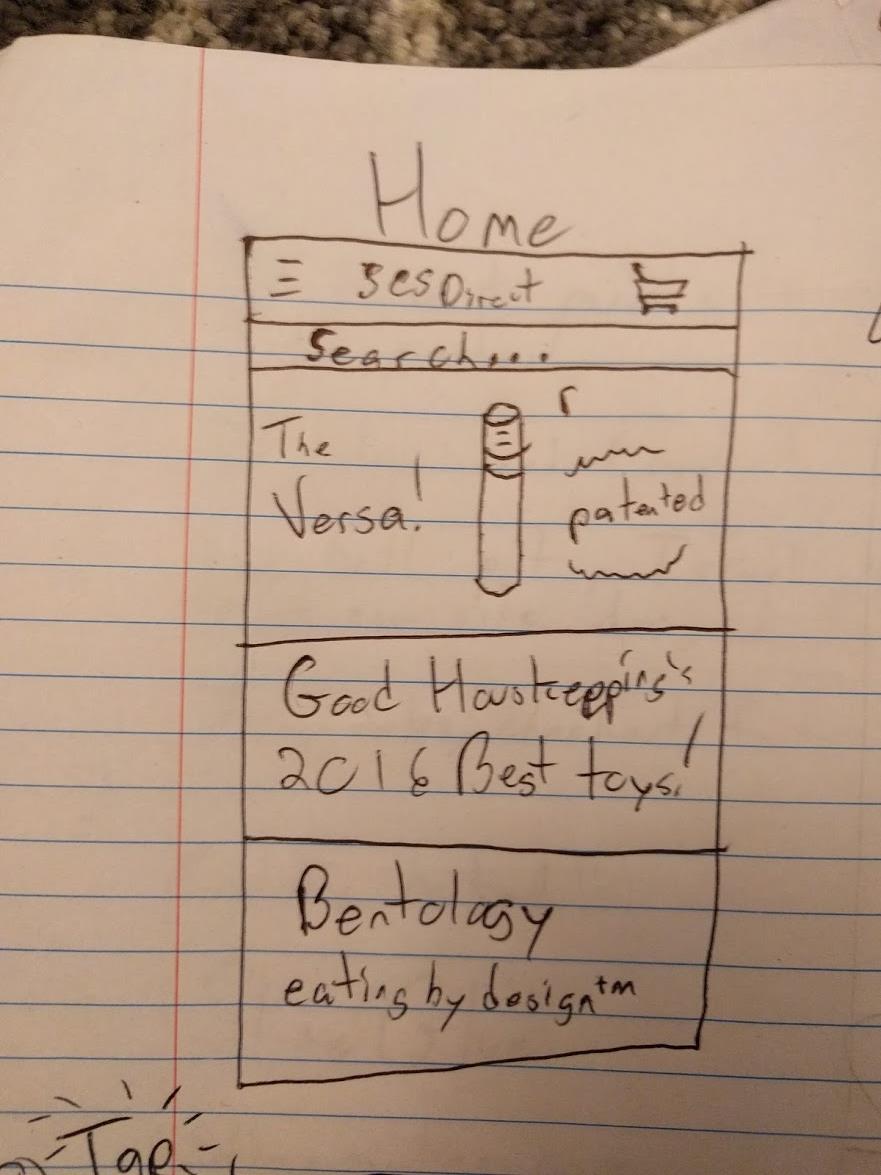 Home
BCS Direct
Search...
The
Versa!
patented
Good Houskeepping's
2016 Best toys!
Bentology
eating by design™
Tap